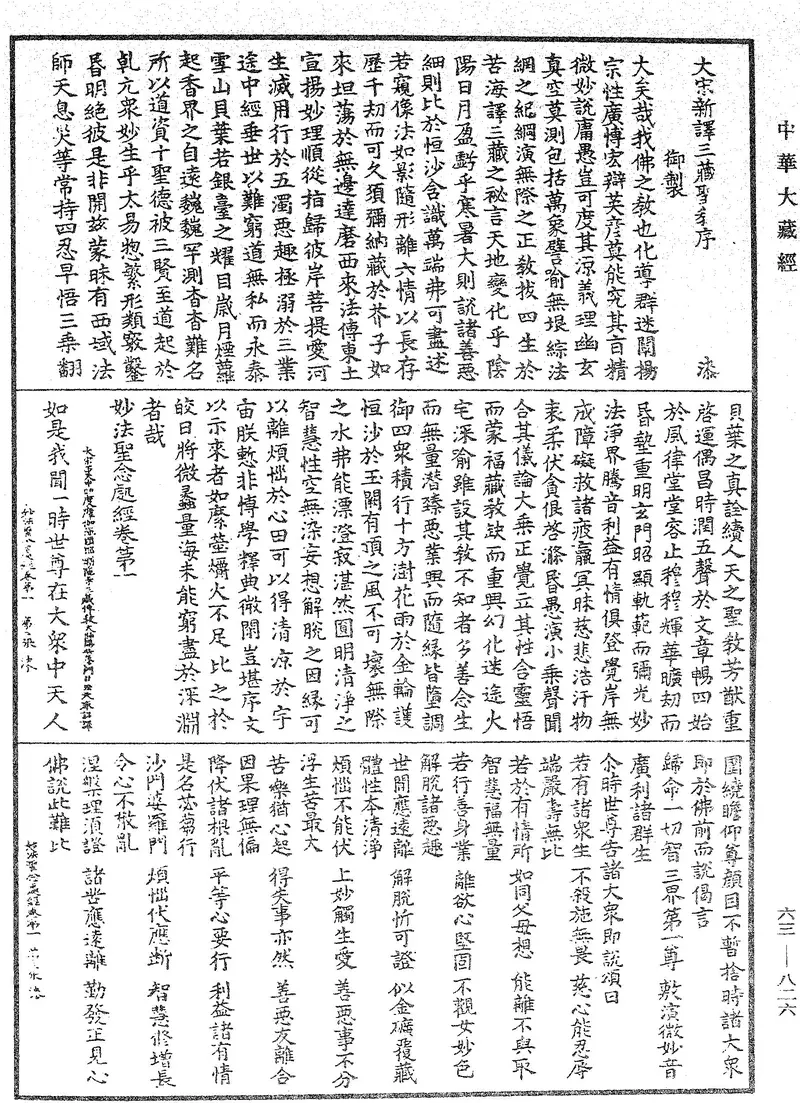 中華大藏經
大宋新譯三藏聖教序　染
御製
大矣哉我佛之教也化導群迷闡揚
宗性廣博宏辯英彥莫能究其旨精
微妙說庸愚豈可度其涼義理幽玄
真空莫測包括萬象譬喻無垠綜法
網之紀綱演無際之正教拔四生於
苦海譯三藏之秘言天地變化乎陰
陽日月盈虧乎寒暑大則說諸善惡
細則比於恒沙含識萬端弗可盡述
若窺像法如影隨形離六情以長存
歷千劫而可久須彌納藏於芥子如
來坦蕩於無邊達磨西來法傳東土
宣揚妙理順從指歸彼岸菩提愛河
生滅用行於五濁惡趣拯溺於三業
途中經垂世以難窮道無私而永泰
雪山貝葉若銀臺之耀目歲月煙蘿
起香界之自遠巍巍罕測杳杳難名
所以道資十聖德被三賢至道起於
乹元眾妙生乎太易惣繁形類竅鑿
昏明絕彼是非開玆蒙昧有西域法
師天息災等常持四忍早悟三乗翻
貝葉之真詮續人天之聖教芳猷重
啓運偶昌時潤五聲於文章暢四始
於風律堂堂容止穆穆輝華曠劫而
昏墊重明玄門昭顯軌範而彌光妙
法淨界騰音利益有情俱登覺岸無
成障礙救諸疲羸冥昧慈悲浩汗物
表柔伏貪佷啓滌昏愚演小乗聲聞
合其儀論大乗正覺立其性含靈悟
而蒙福藏教缺而重興幻化迷途火
宅深喻雖設其教不知者多善念生
而無量潜臻惡業興而隨緣皆墮調
御四眾積行十方澍花雨於金輪護
恒沙於玉闕有頂之風不可壞無際
之水弗能漂澄寂湛然圓明清淨之
智慧性空無染妄想解脫之因緣可
以離煩惱於心田可以得清凉於宇
宙朕慙非博學釋典微閑豈堪序文
以示來者如縻螢爝火不足比之於
皎日將微蠡量海未能窮盡於深淵
者哉
妙法聖念處經卷第一
如是我聞一時世尊在大眾中天人
妙法聖念處經卷第一　第二張　染
圍繞瞻仰尊顏目不暫捨時諸大眾
即於佛前而說偈言
歸命一切智　三界第一尊　敷演微妙音
廣利諸群生
尒時世尊告諸大眾即說頌曰
若有諸眾生　不殺施無畏　慈心能忍辱
端嚴壽無比
若於有情所　如同父母想　能離不與取
智慧福無量
若行善身業　離欲心堅固　不觀女妙色
解脫諸惡趣
世間應遠離　解脫忻可證　似金礦覆藏
體性本清淨
煩惱不能伏　上妙觸生愛　善惡事不分
浮生苦最大
苦樂猶心起　得失事亦然　善惡友離合
因果理無偏
降伏諸根亂　平等心要行　利益諸有情
是名苾蒭行
沙門婆羅門　煩惱伏應斷　智慧修增長
令心不散亂
涅槃理須證　諸世應遠離　勤發正見心
佛說此難比
妙法聖念處經卷第一　第三張　染
六三—八二六